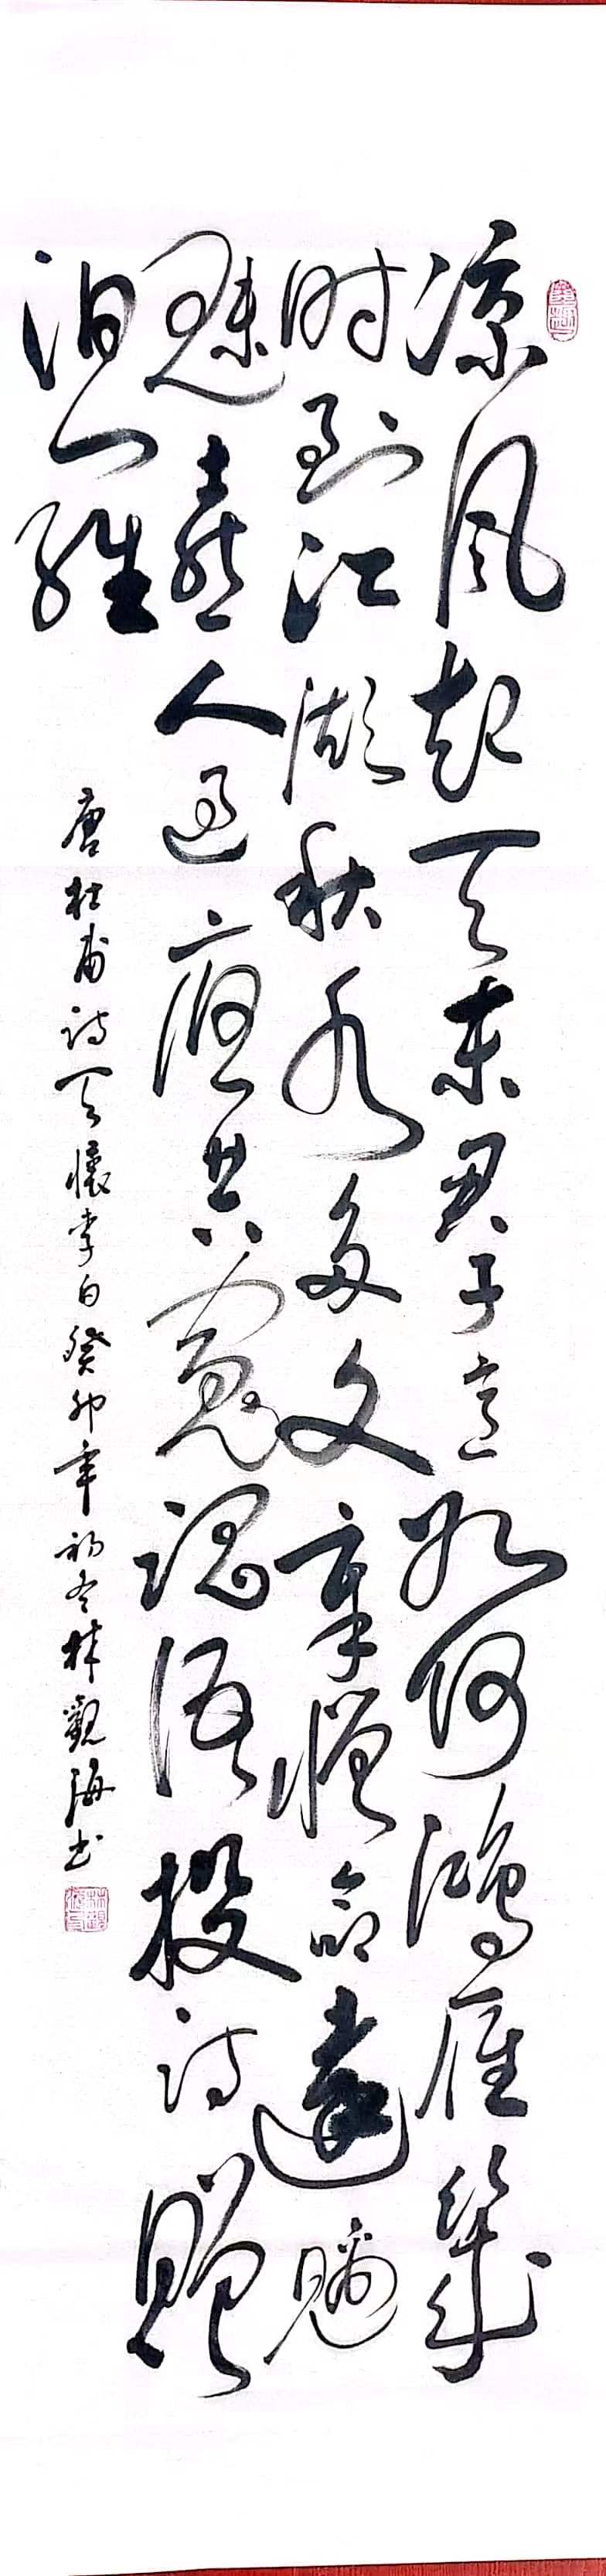 凉风起天末君子意如何鸿雁几
时到江湖秋水多文章憎命達魑
魅喜人过應共冤魂语投诗赠
汨羅
唐杜甫诗天懷李白癸卯年初冬林觀海书